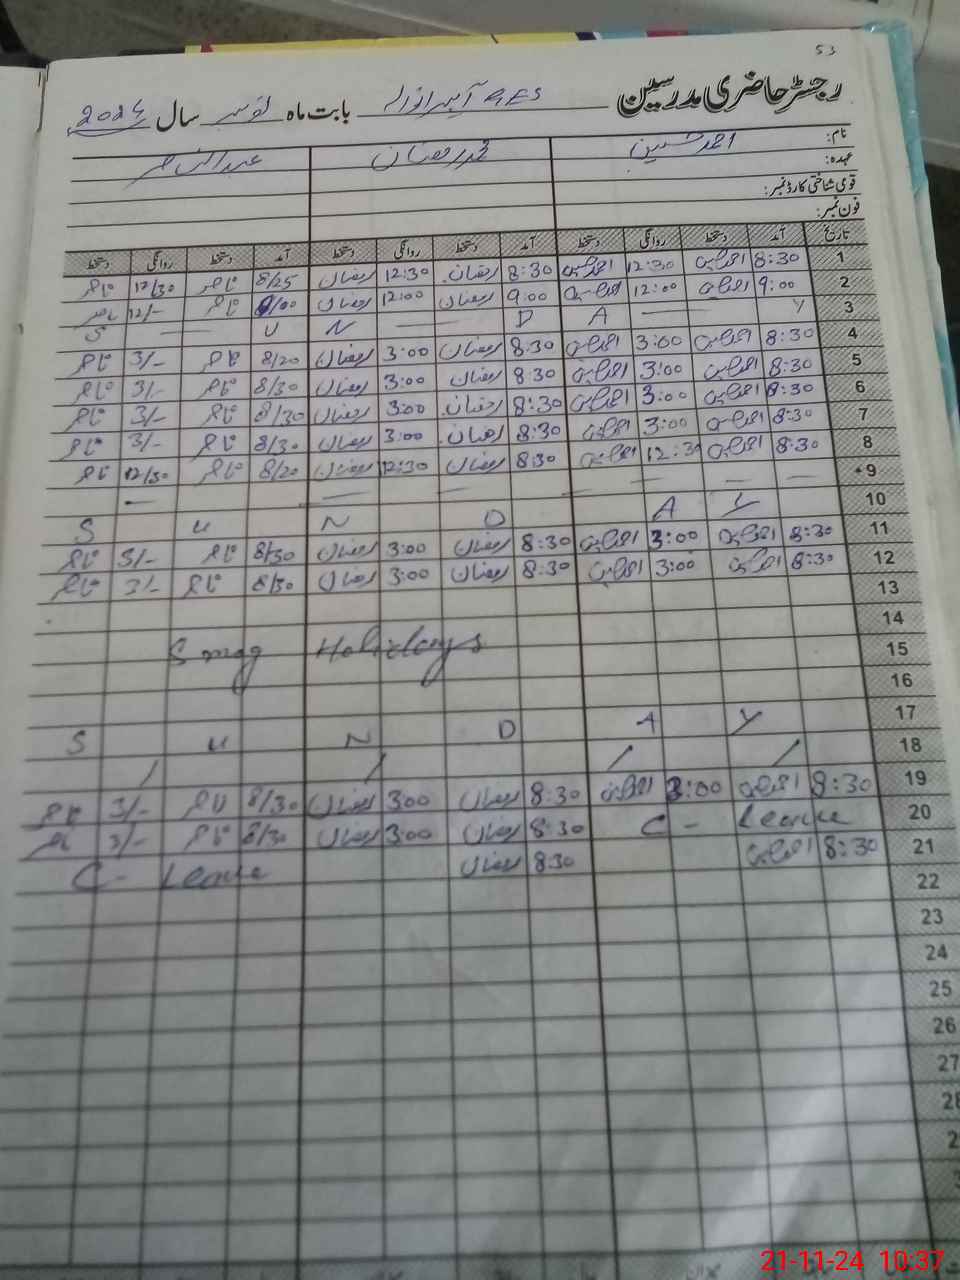 53
رجسٹر حاضری مدرسین GES بابت ماہ نومبر سال 2024
نام: احمد حسین محمد رمضان عبدالناصر
عہدہ:
قومی شناختی کارڈ نمبر:
فون نمبر:
تاریخ آمد دستخط روانگی دستخط آمد دستخط روانگی دستخط آمد دستخط روانگی دستخط
1 8:30 12:30 8:30 رمضان 12:30 رمضان 8/25 ناصر 12/30 ناصر
2 9:00 12:00 9:00 رمضان 12:00 رمضان 9/00 ناصر 12/- ناصر
3 S — U N — D A — Y
4 8:30 3:00 8:30 رمضان 3:00 رمضان 8/20 ناصر 3/- ناصر
5 8:30 3:00 8:30 رمضان 3:00 رمضان 8/30 ناصر 3/- ناصر
6 8:30 3:00 8:30 رمضان 3:00 رمضان 8/30 ناصر 3/- ناصر
7 8:30 3:00 8:30 رمضان 3:00 رمضان 8/30 ناصر 3/- ناصر
8 8:30 12:30 8:30 رمضان 12:30 رمضان 8/20 ناصر 12/30 ناصر
9 — — — — — —
10 S U N D A Y
11 8:30 3:00 8:30 رمضان 3:00 رمضان 8/30 ناصر 3/- ناصر
12 8:30 3:00 8:30 رمضان 3:00 رمضان 8/30 ناصر 3/- ناصر
13
14
15 Smog Holidays
16
17 S U N D A Y
18 / / / /
19 8:30 3:00 8:30 رمضان 3:00 رمضان 8/30 ناصر 3/- ناصر
20 C - Leave 8:30 رمضان 3:00 رمضان 8/30 ناصر 3/- ناصر
21 8:30 8:30 رمضان C - Leave
22
23
24
25
26
27
28
21-11-24 10:37